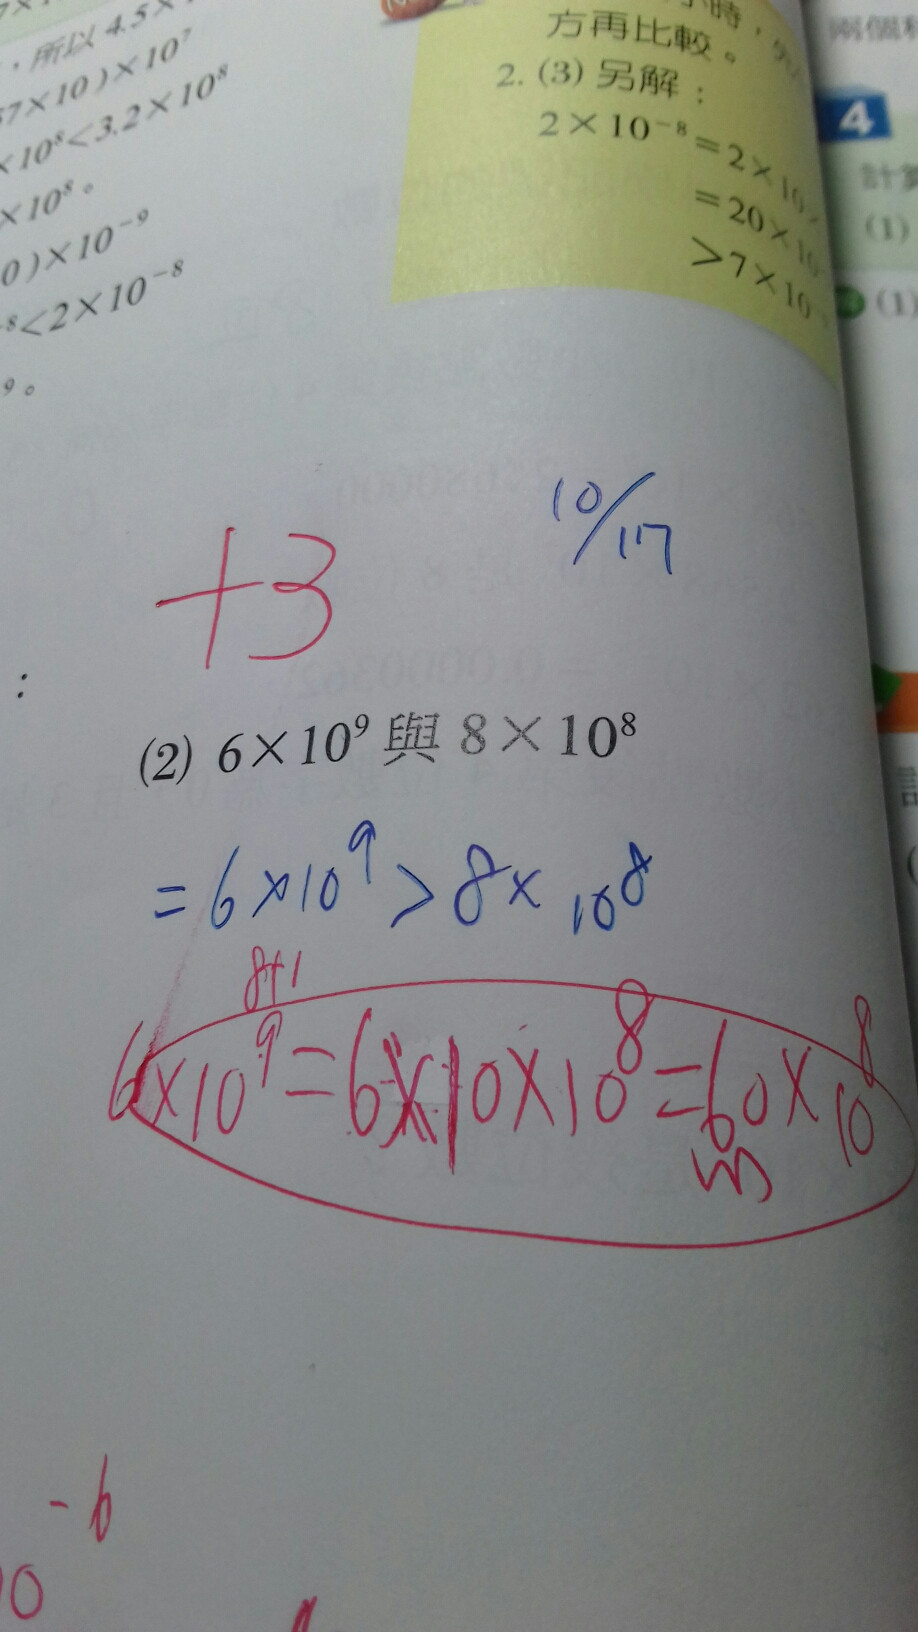 ，所以 4.5×1
57×10 )×10⁷
×10⁸<3.2×10⁸
×10⁸。
0 )×10⁻⁹
⁻⁸<2×10⁻⁸
⁹。
小時，
方再比較。
2. (3) 另解：
2×10⁻⁸=2×10×
=20×10
>7×10⁻
兩個
4
計算
(1)
(1)
+3
10/17
：
(2) 6×10⁹ 與 8×10⁸
= 6×10⁹ > 8× 10⁸
8+1
6×10⁹=6×10×10⁸=60×10⁸
-6
10